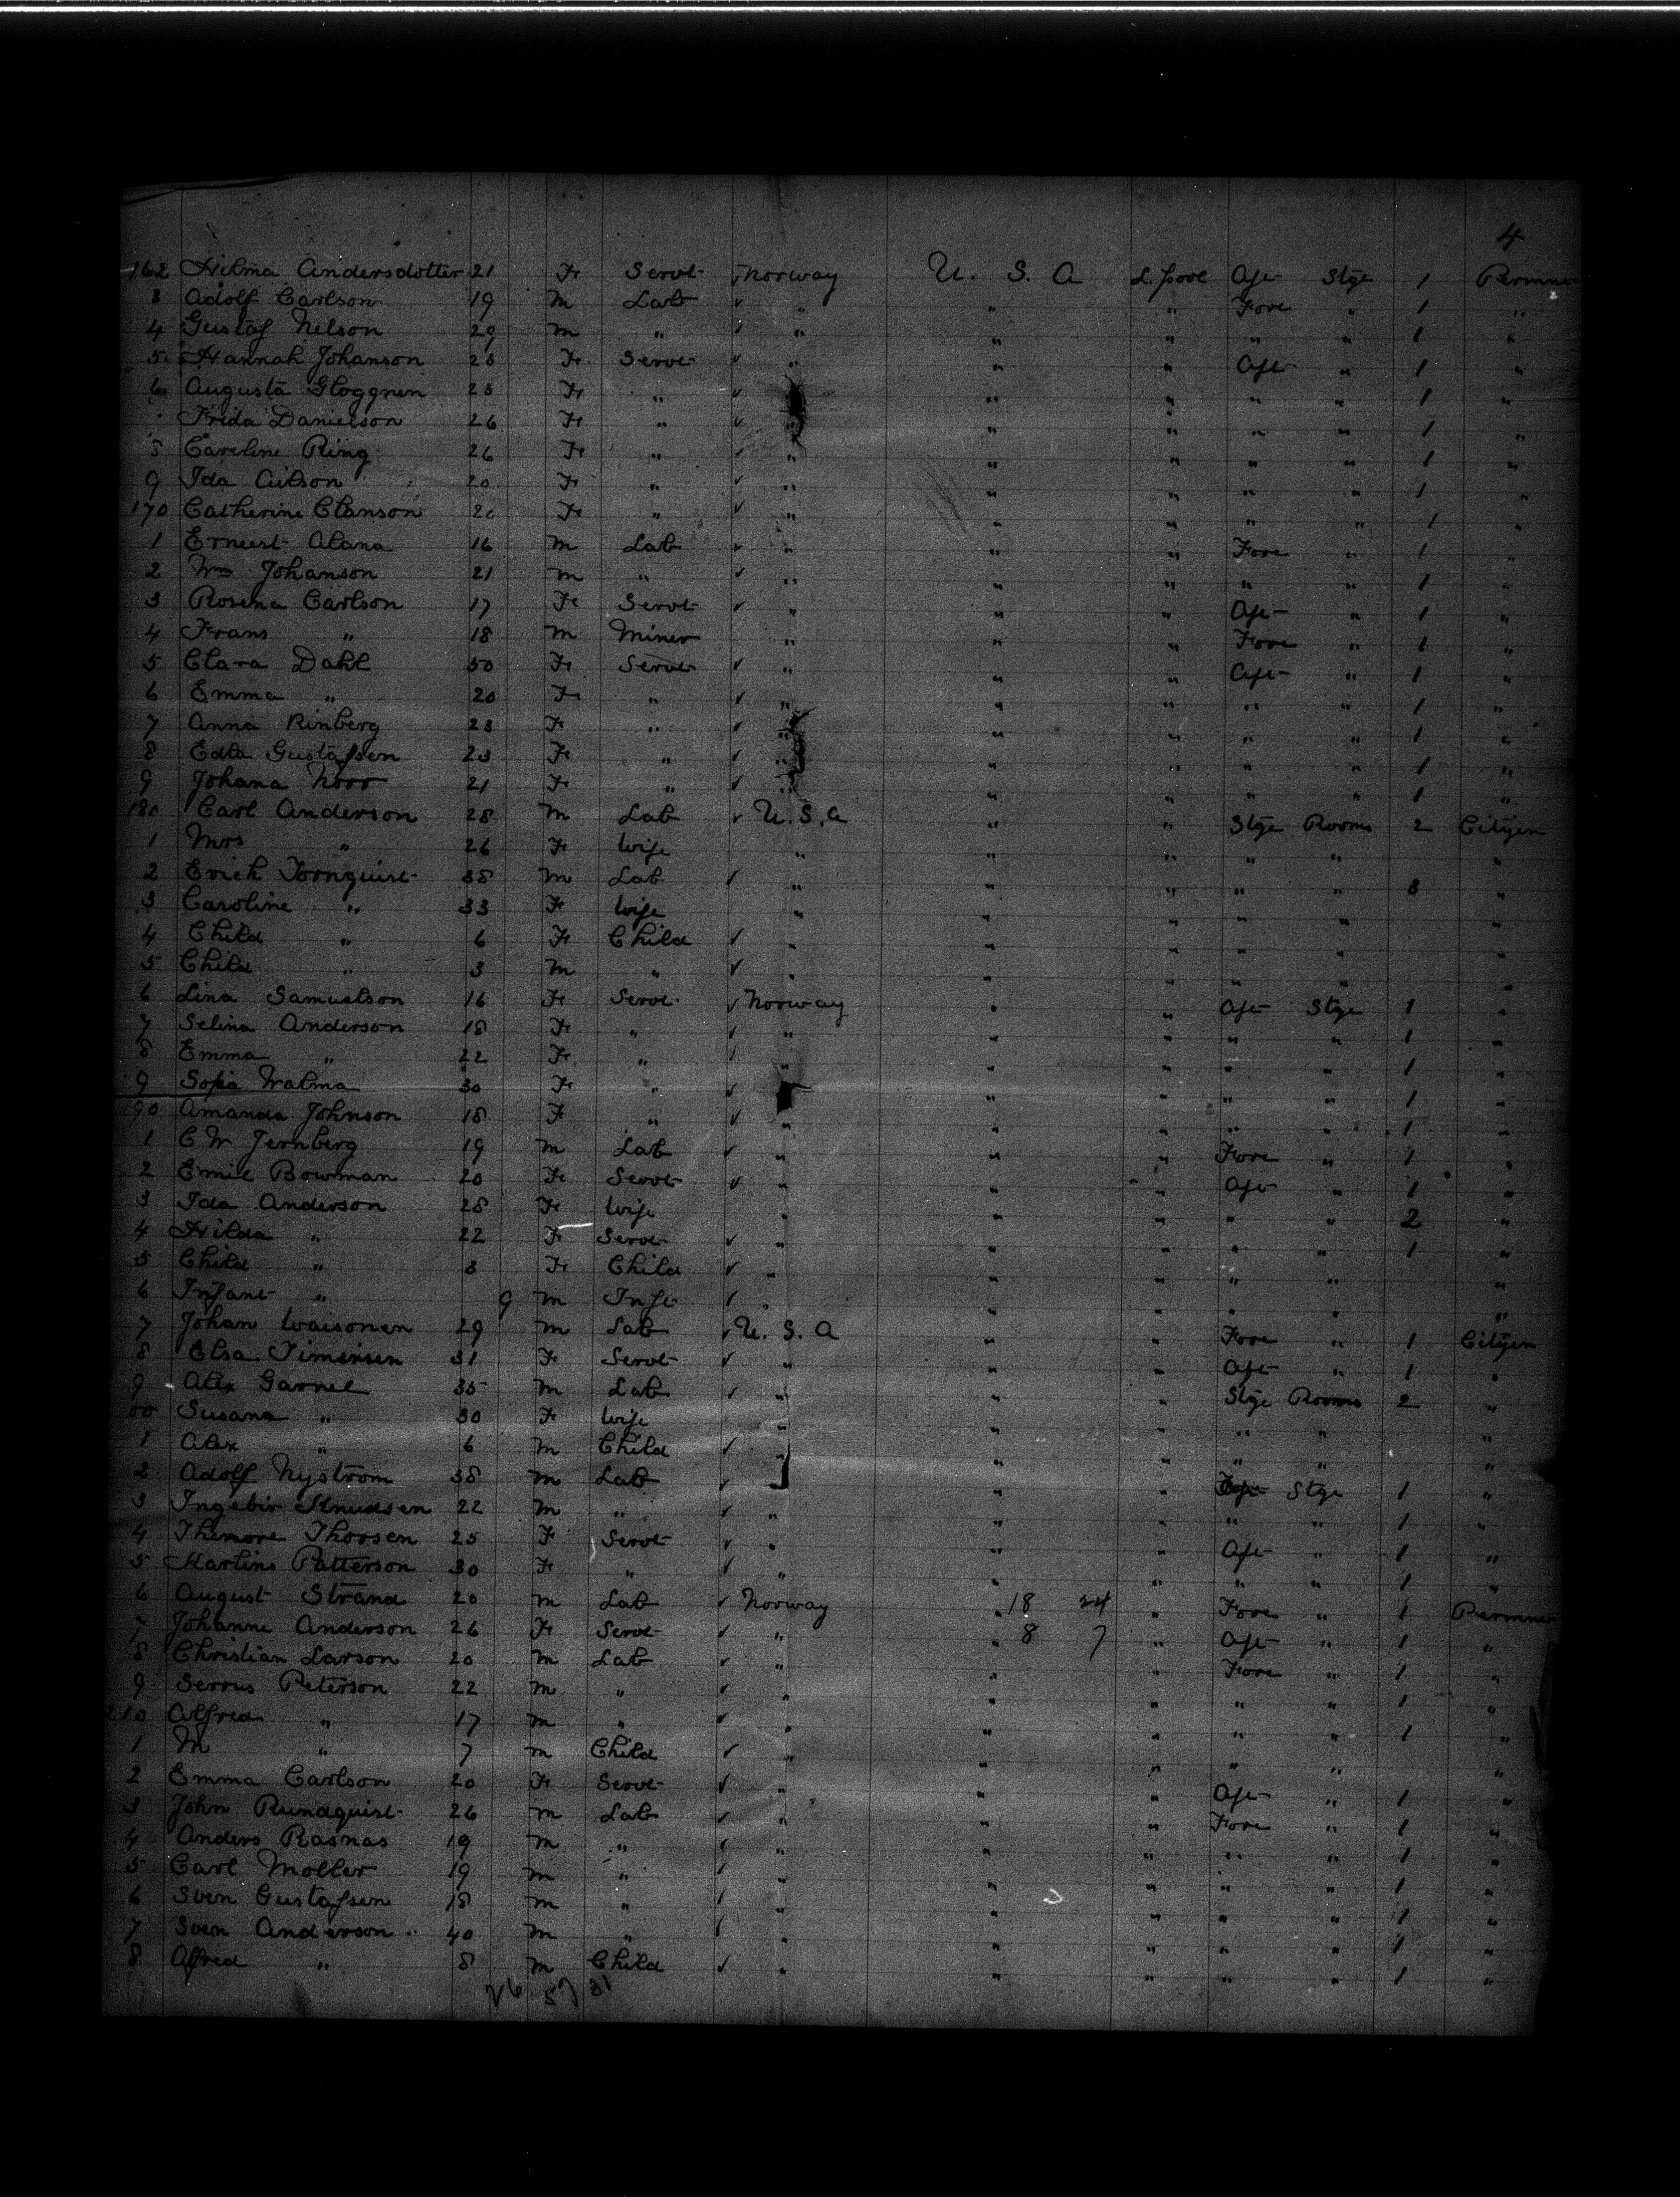 4
162 Hilma Andersdotter 21 Fe Servt ✓ Norway U. S. A L.pool Aft Stge 1 Permnn
3 Adolf Carlson 19 m Lab ✓ " " " Fore " 1 "
4 Gustaf Nelson 29 m " ✓ " " " " " 1 "
5 Hannah Johanson 23 Fe Servt ✓ " " " Aft " 1 "
6 Augusta Gloggnen 23 Fe " ✓ " " " " " 1 "
Frida Danielson 26 Fe " ✓ " " " " " 1 "
8 Caroline Ring 26 Fe " ✓ " " " " " 1 "
9 Ida 20 Fe " ✓ " " " " " 1 "
170 Catherine Clanson 20 Fe " ✓ " " " " " 1 "
1 Erneest Alana 16 m Lab ✓ " " " Fore " 1 "
2 Wm Johanson 21 m " ✓ " " " " " 1 "
3 Rosena Carlson 17 Fe Servt ✓ " " " Aft " 1 "
4 Frans " 18 m Miner " " " Fore " 1 "
5 Clara Dahl 50 Fe Servt ✓ " " " Aft " 1 "
6 Emma " 20 Fe " ✓ " " " " " 1 "
7 Anna Rinberg 23 Fe " ✓ " " " " " 1 "
8 Edla Gustafsen 23 Fe " ✓ " " " " " 1 "
9 Johana Norr 21 Fe " ✓ " " " " " 1 "
180 Carl Anderson 28 m Lab ✓ U.S.A " " Stge Rooms 2 Citizen
1 Mrs " 26 Fe Wife " " " " " "
2 Erick Tornquist 38 m Lab ✓ " " " " " 3 "
3 Caroline " 33 Fe Wife " " " " " "
4 Child " 6 Fe Child ✓ " " " " " "
5 Child " 3 m " ✓ " " " " " "
6 Lina Samuelson 16 Fe Servt ✓ Norway " " Aft Stge 1 "
7 Selina Anderson 18 Fe " ✓ " " " " " 1 "
8 Emma " 22 Fe " ✓ " " " " " 1 "
9 Sofia Walma 30 Fe " ✓ " " " " " 1 "
90 Amanda Johnson 18 F " ✓ " " " " " 1 "
1 C W Jernberg 19 m Lab ✓ " " " Fore " 1 "
2 Emil Bowman 20 Fe Servt ✓ " " " Aft " 1 "
3 Ida Anderson 28 Fe Wife " " " " " 2 "
4 Hilda " 22 Fe Servt ✓ " " " " " 1 "
5 Child " 3 Fe Child ✓ " " " " " "
6 Infant " 9 m Inft ✓ " " " " " "
7 Johan Waisonen 29 m Lab ✓ U. S. A " " Fore " 1 Citizen
8 Elsa Timensen 31 Fe Servt ✓ " " " Aft " 1 "
9 Alex Garnel 35 m Lab ✓ " " " Stge Rooms 2 "
00 Susana " 30 Fe Wife " " " " " "
1 Alex " 6 m Child ✓ " " " " " "
2 Adolf Nystrom 38 m Lab ✓ " " Stge 1 "
3 Ingebir Knudsen 22 m " ✓ " " " " " 1 "
4 Thimore Thorsen 25 F Servt ✓ " " " Aft " 1 "
5 Martins Patterson 30 Fe " ✓ " " " " " 1 "
6 August Strand 20 m Lab ✓ Norway " 18 24 " Fore " 1 Permnn
7 Johanne Anderson 26 Fe Servt ✓ " " 8 7 " Aft " 1 "
8 Christian Larson 20 m Lab ✓ " " " Fore " 1 "
9 Serrus Peterson 22 m " ✓ " " " " " 1 "
210 Alfred " 17 m " ✓ " " " " " 1 "
1 M " 7 m Child ✓ " " " " " "
2 Emma Carlson 20 Fe Servt ✓ " " " Aft " 1 "
3 John Rundquist 26 m Lab ✓ " " " Fore " 1 "
4 Anders Rasnas 19 m " ✓ " " " " " 1 "
5 Carl Moller 19 m " ✓ " " " " " 1 "
6 Sven Gustafsen 18 m " ✓ " " " " " 1 "
7 Sven Anderson 40 m " ✓ " " " " " 1 "
8 Alfred " 8 m Child ✓ " " " " " 1 "
26 57 31